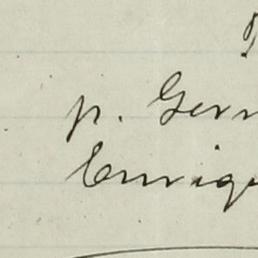 p. Germ
Enriq